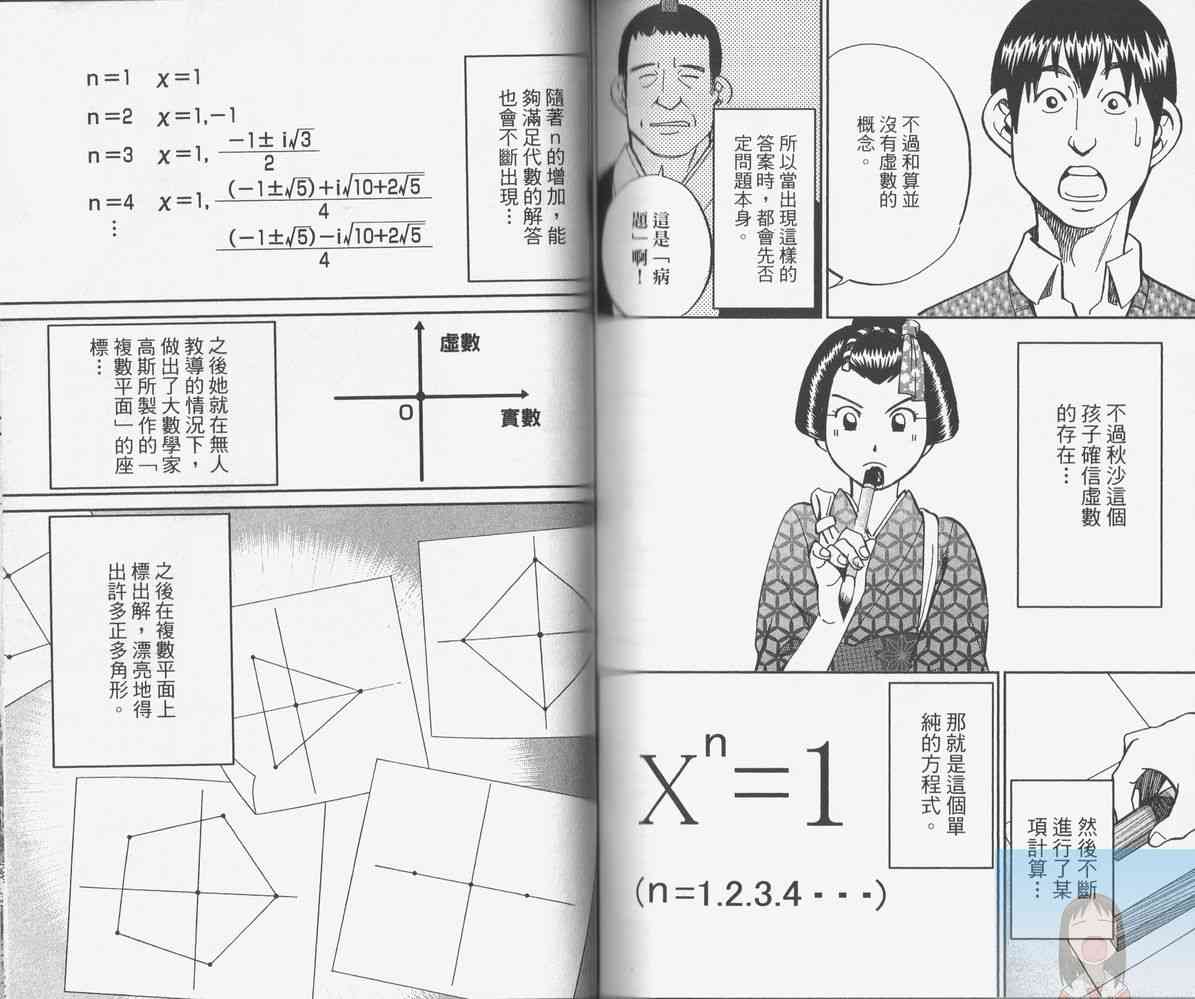 不過和算並
沒有虛數的
概念。
所以當出現這樣的
答案時,都會先否
定問題本身。
這是「病
題」啊!
不過秋沙這個
孩子確信虛數
的存在…
然後不斷
進行了某
項計算…
那就是這個單
純的方程式。
xⁿ=1
(n=1.2.3.4・・・)
隨著n的增加,能
夠滿足代數的解答
也會不斷出現…
n=1 x=1
n=2 x=1,-1
n=3 x=1, (-1±i√3)/2
n=4 x=1, ((-1±√5)+i√(10+2√5))/4
⋮ ((-1±√5)-i√(10+2√5))/4
虛數
O
實數
之後她就在無人
教導的情況下,
做出了大數學家
高斯所製作的「
複數平面」的座
標…
之後在複數平面上
標出解,漂亮地得
出許多正多角形。